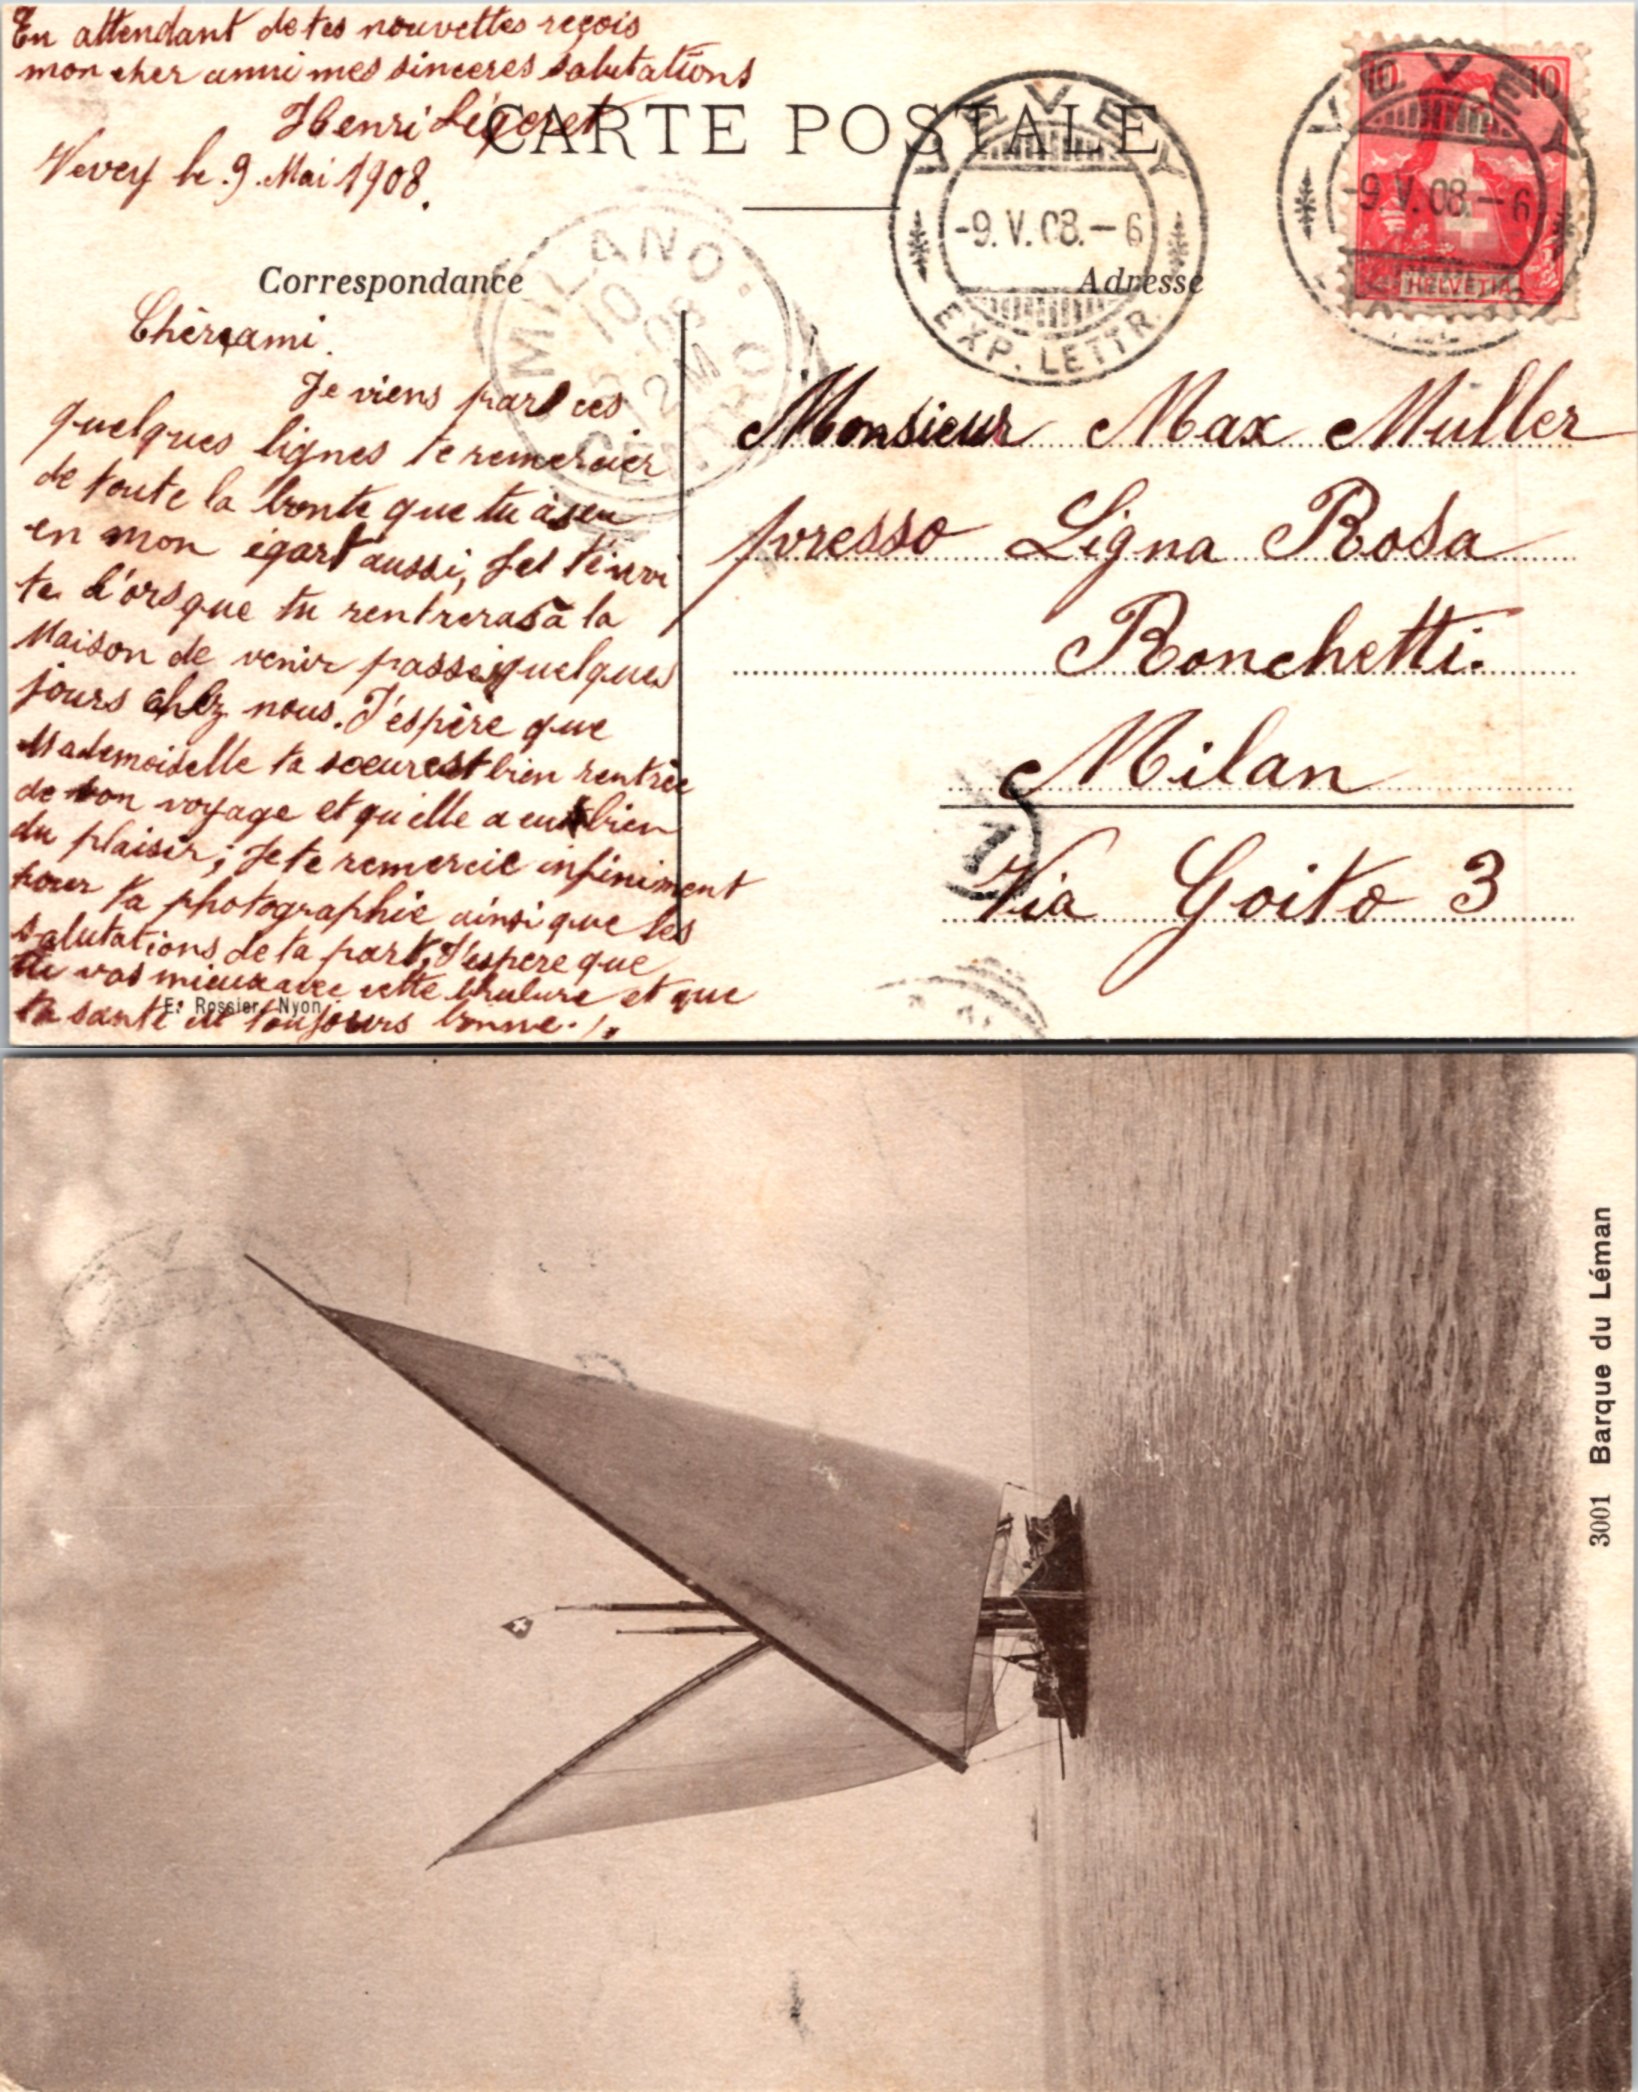 En attendant de tes nouvelles reçois
mon cher ami mes sinceres salutations
Henri Légeret
Vevey le 9. Mai 1908.
CARTE POSTALE
Correspondance
Adresse
VEVEY
-9.V.08.-6
EXP. LETTR.
VEVEY
-9.V.08.-6
10 10
HELVETIA
MILANO
10
08
12M
CENTRO
Chèr ami.
Je viens par ces
quelques lignes te remercier
de toute la bonte que tu as eu
en mon égart aussi, Je t'invi
te l'orsque tu rentreras à la
Maison de venir passer quelques
jours chez nous. J'espère que
Mademoiselle ta soeur est bien rentrée
de son voyage et qu'elle a eut bien
du plaisir; Je te remercie infiniment
pour ta photographie ainsi que les
salutations de ta part, J'espere que
tu vas mieux avec cette brulure et que
ta santé est toujours bonne.
E. Rossier, Nyon
Monsieur Max Muller
presso Signa Rosa
Ronchetti.
Milan
Via Goito 3
3001 Barque du Léman